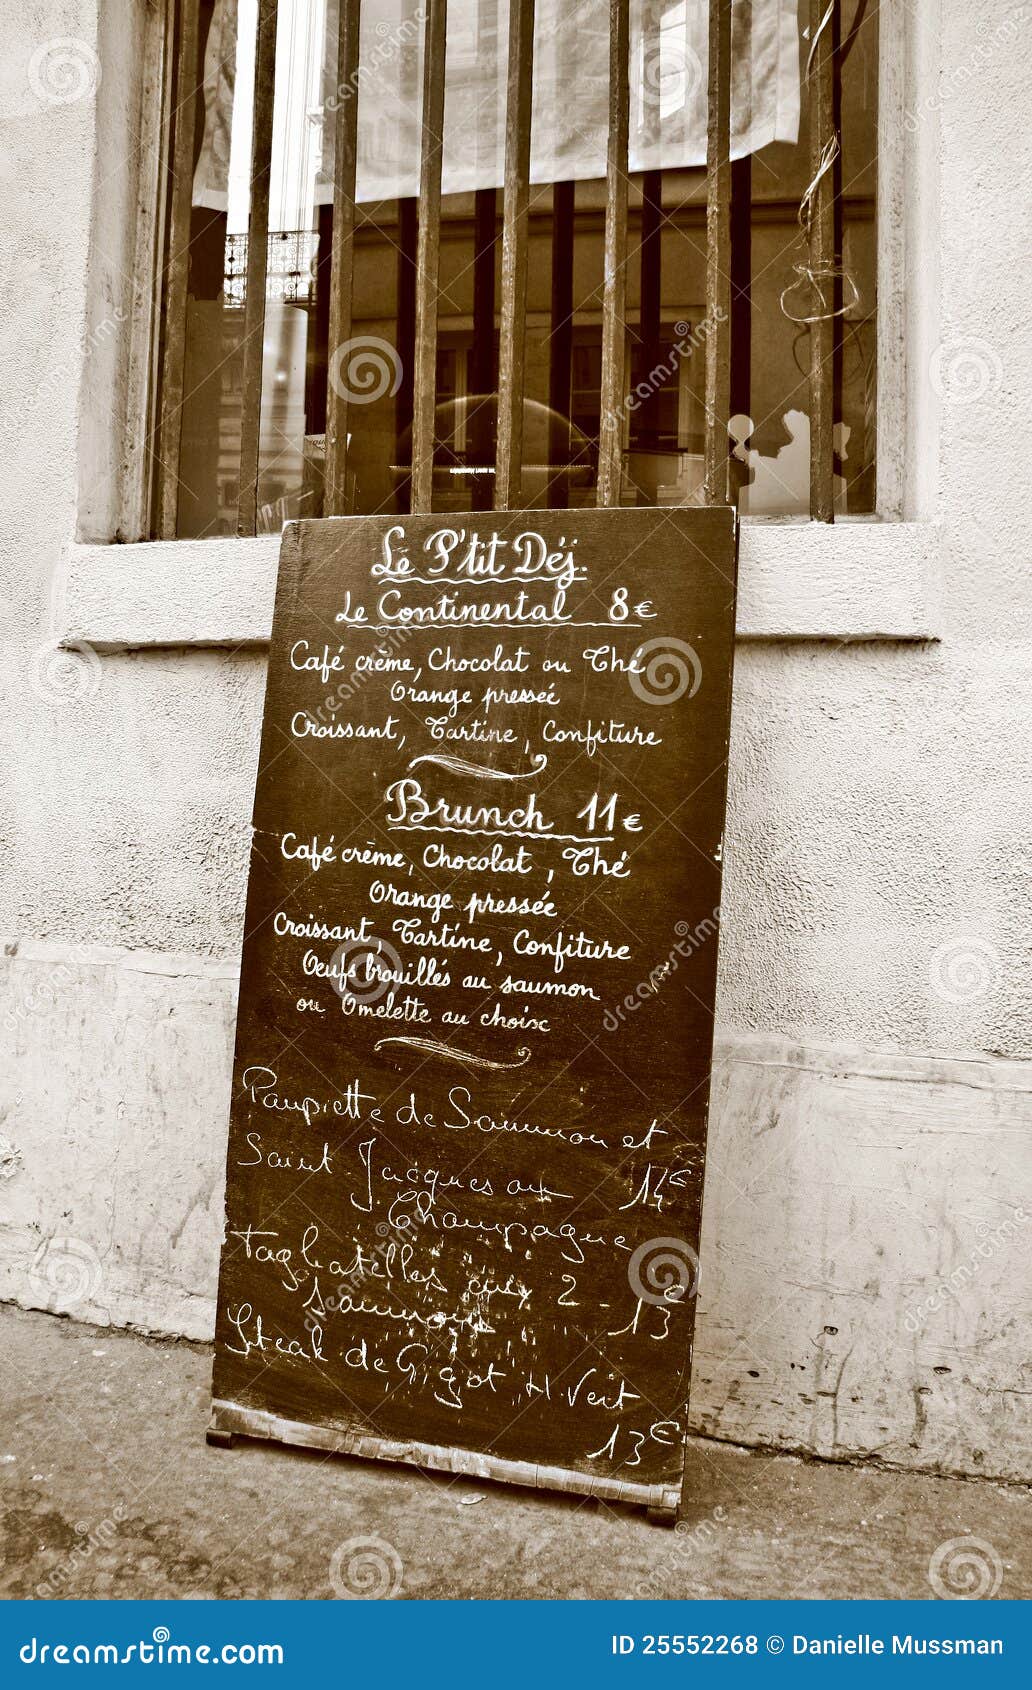 Le P'tit Déj.
Le Continental 8€
Café crème, Chocolat ou Thé
Orange pressée
Croissant, Tartine, Confiture
Brunch 11€
Café crème, Chocolat, Thé
Orange pressée
Croissant, Tartine, Confiture
Oeufs brouillés au saumon
ou Omelette au choix
Paupiette de Saumon et
Saint Jacques au 14€
Champagne
Tagliatelles aux 2 - 13€
Saumons
Steak de Gigot H. Vert
13€
dreamstime.com
ID 25552268 © Danielle Mussman